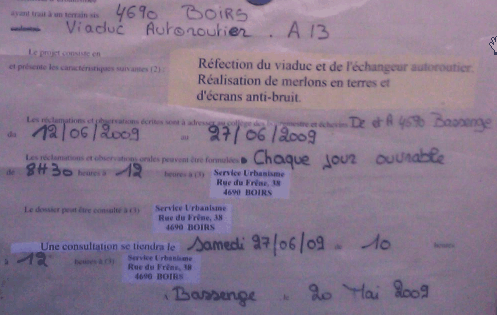 ayant trait à un terrain sis 4690 BOIRS
Viaduc Autoroutier . A 13
Le projet consiste en
et présente les caractéristiques suivantes (2) :
Réfection du viaduc et de l'échangeur autoroutier.
Réalisation de merlons en terres et
d'écrans anti-bruit.
Les réclamations et observations écrites sont à adresser au collège des et échevins De et A 4690 Bassenge
du 12/06/2009 au 27/06/2009
Les réclamations et observations orales peuvent être formulées Chaque jour ouvrable
de 8H30 heures à 12 heures à (3) Service Urbanisme
Rue du Frêne, 38
4690 BOIRS
Le dossier peut être consulté à (3) Service Urbanisme
Rue du Frêne, 38
4690 BOIRS
Une consultation se tiendra le Samedi 27/06/09 de 10 heures
à 12 heures à (3) Service Urbanisme
Rue du Frêne, 38
4690 BOIRS
Bassenge 20 Mai 2009